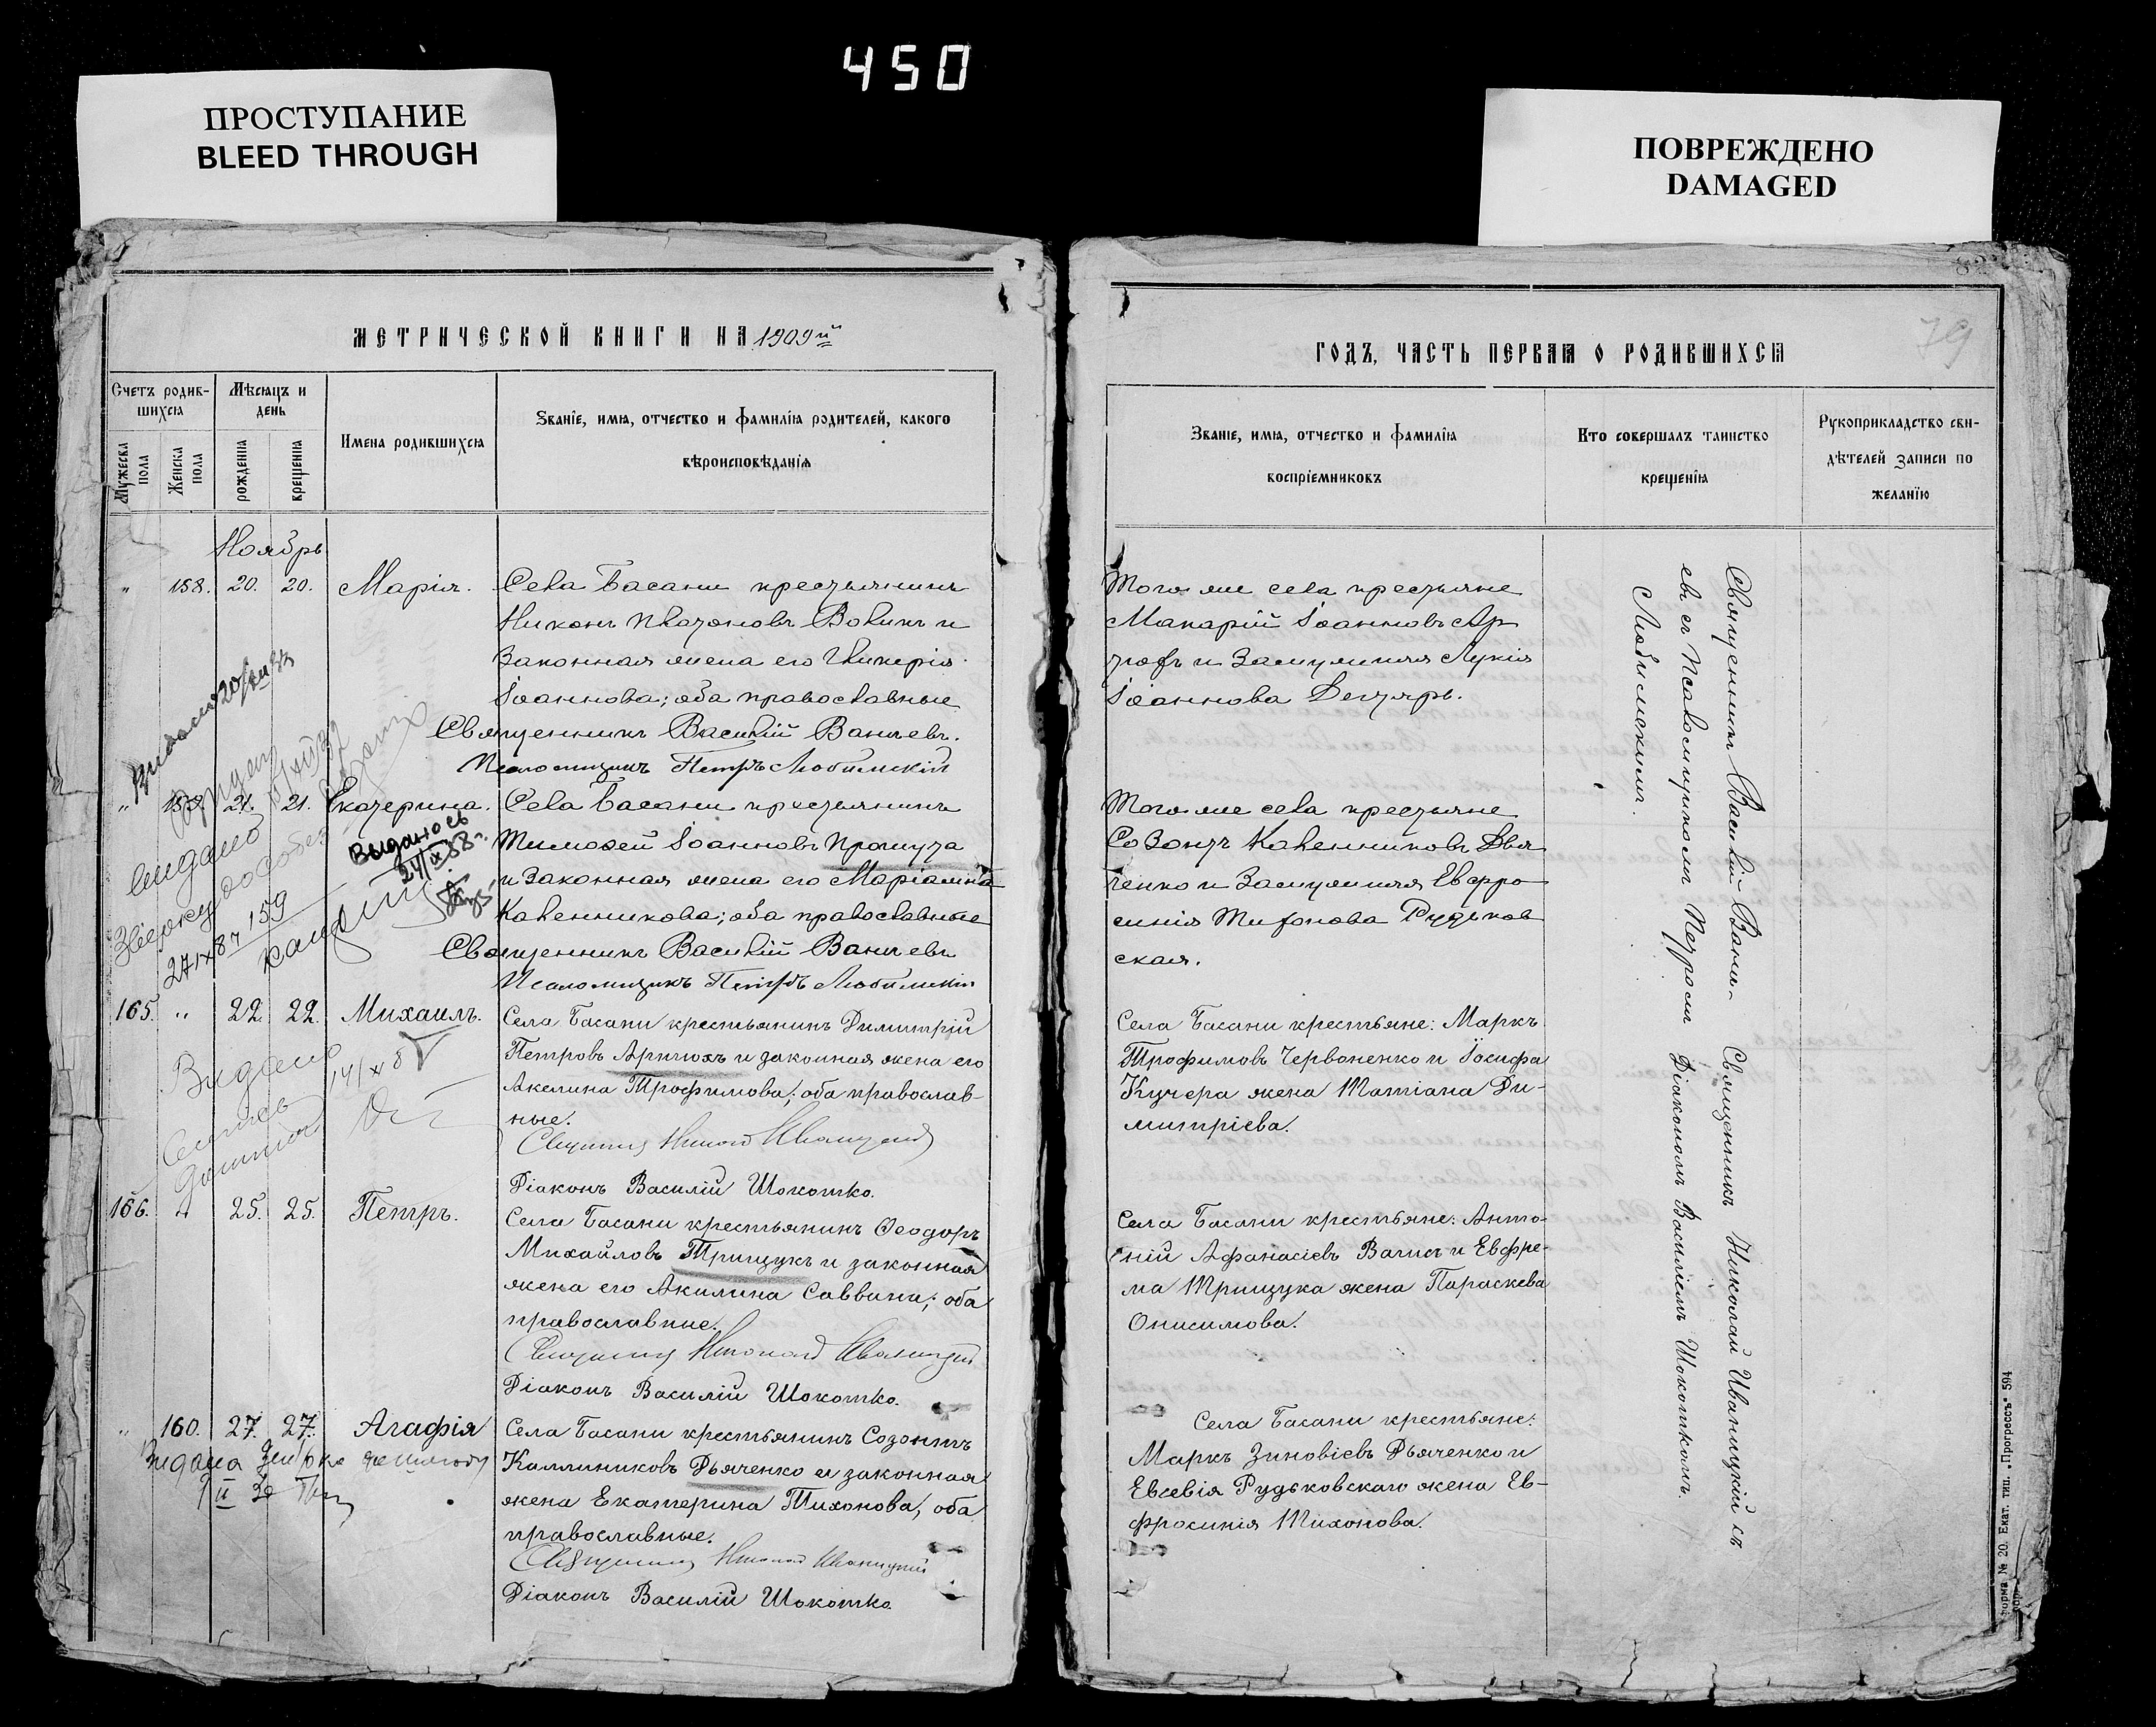 450
ПРОСТУПАНИЕ
BLEED THROUGH
ПОВРЕЖДЕНО
DAMAGED
МЕТРИЧЕСКОЙ КНИГИ НА 1909й
Счетъ родив-
шихся
Мѣсяцъ и
день
Имена родившихся
Званіе, имя, отчество и фамилія родителей, какого
вѣроисповѣданія
Мужеска пола
Женска пола
рожденія
крещенія
Ноябрь
" 158. 20. 20. Марія. Села Басани крестьянинъ
Никонъ Вовкъ и
законная жена его Гликерія
Іоаннова; оба православные
Священникъ Василій Ваничевъ.
Псаломщикъ Петръ Любимскій
" 159. 21. 21. Екатерина. Села Басани крестьянинъ
Тимофей Іоанновъ
и законная жена его Маріамна
Каленникова; оба православные
Священникъ Василій Ваничевъ
Псаломщикъ Петръ Любимскій
165. " 22. 22. Михаилъ. Села Басани крестьянинъ Димитрій
Петровъ Артюхъ и законная жена его
Акелина Трофимова; оба православ-
ные.
Священникъ Николай Иваницкій
Діаконъ Василій Шокотко.
166. " 25. 25. Петръ. Села Басани крестьянинъ Ѳеодоръ
Михайловъ Трищукъ и законная
жена его Акилина Саввина; оба
православные.
Священникъ Николай Иваницкій
Діаконъ Василій Шокотко.
" 160. 27. 27. Агафія Села Басани крестьянинъ Созонтъ
Каллиниковъ Дьяченко и законная
жена Екатерина Тихонова, оба
православные.
Священникъ Николай Иваницкій
Діаконъ Василій Шокотко.
Видано
Выдано
24/IX 38
159
Видано
Видана
82
79
ГОДЪ, ЧАСТЬ ПЕРВАЯ О РОДИВШИХСЯ
Званіе, имя, отчество и фамилія
воспріемниковъ
Кто совершалъ таинство
крещенія
Рукоприкладство сви-
дѣтелей записи по
желанію
Того же села крестьяне
Макарій Іоанновъ Ар
тюхъ и замужняя Лукія
Іоаннова Дегтярь.
Того же села крестьяне
Созонтъ Каленниковъ Дья
ченко и замужняя Евфро
синія Тихонова Рудьков
ская.
Села Басани крестьяне: Маркъ
Трофимовъ Червоненко и Іосифа
Кучера жена Татіана Ди-
митріева.
Села Басани крестьяне: Анто-
ній Афанасіевъ и Евфре-
ма Трищука жена Параскева
Онисимова.
Села Басани крестьяне:
Маркъ Зиновіевъ Дьяченко и
Евсевія Рудьковскаго жена Ев-
фросинія Тихонова.
Священникъ Василій Ваниче-
въ съ Псаломщикомъ Петромъ
Любимскимъ.
Священникъ Николай Иваницкій съ
Діакономъ Василіемъ Шокоткомъ.
Форма № 20. Екат. тип. „Прогрессъ" 594